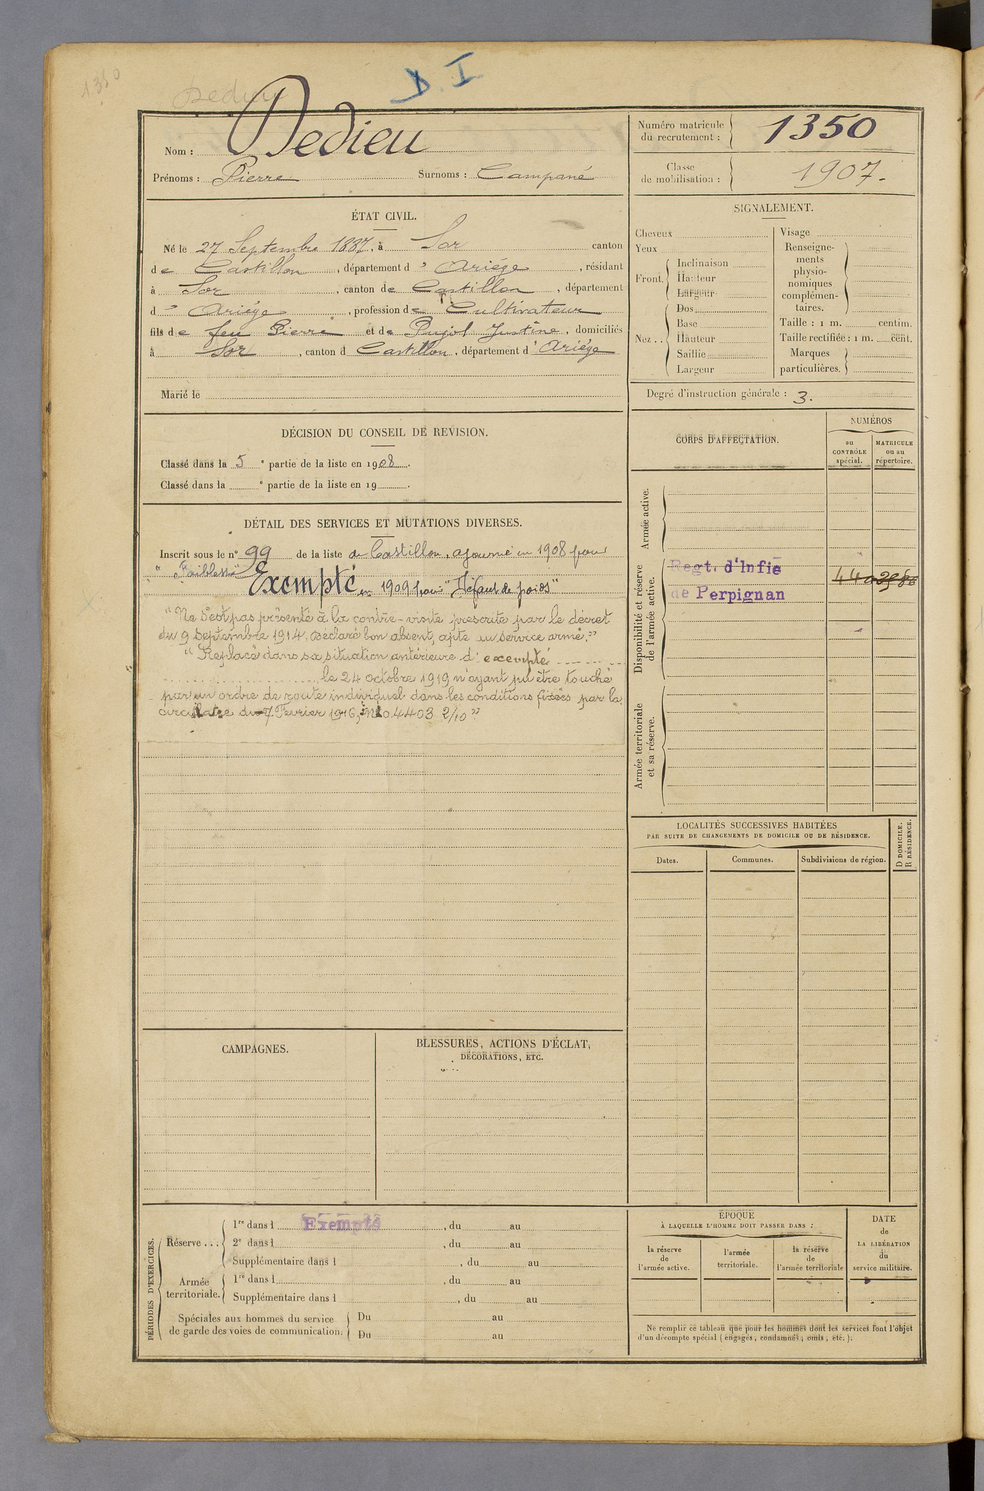 1350
Dedieu
D. I
Nom : Dedieu
Prénoms : Pierre Surnoms : Campané
ÉTAT CIVIL.
Né le 27 Septembre 1887, à Sor canton
de Castillon, département d' Ariége, résidant
à Sor, canton de Castillon, département
d' Ariége, profession de Cultivateur
fils de feu Pierre et de Pujol Justine, domiciliés
à Sor, canton d Castillon, département d' Ariége
Marié le
DÉCISION DU CONSEIL DE REVISION.
Classé dans la 5e partie de la liste en 1908.
Classé dans la e partie de la liste en 19 .
DÉTAIL DES SERVICES ET MUTATIONS DIVERSES.
Inscrit sous le n° 99 de la liste de Castillon, ajourné en 1908 pour
"Faiblesse" Exempté en 1909 pour "Défaut de poids"
"Ne s'est pas présenté à la contre-visite prescrite par le décret
du 9 Septembre 1914, déclaré bon absent, apte au service armé."
"Replacé dans sa situation antérieure d' exempté
le 24 octobre 1919 n'ayant pu être touché
par un ordre de route individuel dans les conditions fixées par la
circulaire du 7 Fevrier 1916, N° 4403 2/10"
CAMPAGNES.
BLESSURES, ACTIONS D'ÉCLAT,
DÉCORATIONS, ETC.
PÉRIODES D'EXERCICES.
Réserve . . .
1re dans l Exempté, du au
2e dans l , du au
Supplémentaire dans l , du au
Armée
territoriale.
1re dans l , du au
Supplémentaire dans l , du au
Spéciales aux hommes du service
de garde des voies de communication.
Du au
Du au
Numéro matricule
du recrutement : 1350
Classe
de mobilisation : 1907.
SIGNALEMENT.
Cheveux
Yeux
Front.
Inclinaison
Hauteur
Largeur
Nez . .
Dos
Base
Hauteur
Saillie
Largeur
Visage
Renseigne-
ments
physio-
nomiques
complémen-
taires.
Taille : 1 m. centim.
Taille rectifiée : 1 m. cent.
Marques
particulières.
Degré d'instruction générale : 3.
CORPS D'AFFECTATION.
NUMÉROS
au
CONTRÔLE
spécial.
MATRICULE
ou au
répertoire.
Armée active.
Disponibilité et réserve
de l'armée active.
Regt. d'Infie
de Perpignan
Armée territoriale
et sa réserve.
LOCALITÉS SUCCESSIVES HABITÉES
PAR SUITE DE CHANGEMENTS DE DOMICILE OU DE RÉSIDENCE.
Dates.
Communes.
Subdivisions de région.
D DOMICILE.
R RÉSIDENCE.
ÉPOQUE
À LAQUELLE L'HOMME DOIT PASSER DANS :
la réserve
de
l'armée active.
l'armée
territoriale.
la réserve
de
l'armée territoriale
DATE
de
LA LIBÉRATION
du
service militaire.
Ne remplir ce tableau que pour les hommes dont les services font l'objet
d'un décompte spécial (engagés, condamnés, omis, etc.).